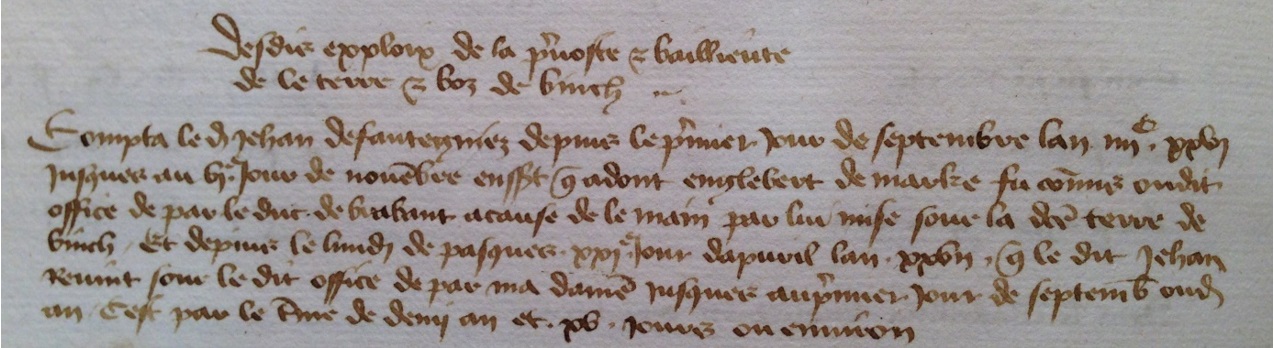 Desdis exploix de la p̃uoste & baillieute
de le terre & boz de binch
Compta le dt Jehan defantegniez depuis le p̃mier Jour de septembre lan iiijᶜ. xxvj
Jusques au vjᵉ Jour de nouẽbre enssyt q̃ adont englebert de marke fu cõmis oudit
office de par le duc de brabant a cause de le main par lui mise sour la dcẽ terre de
binch. Et depuis le lundj de pasques xxjᵉ Jour dapuril lan. xxvij. q̃ le dit Jehan
Reuint sour le dit office de par ma damẽ Jusques au p̃mier Jour de septemb̃ oud
an. Cest par le t̃me de demj an et. xv. Jours ou enuiron